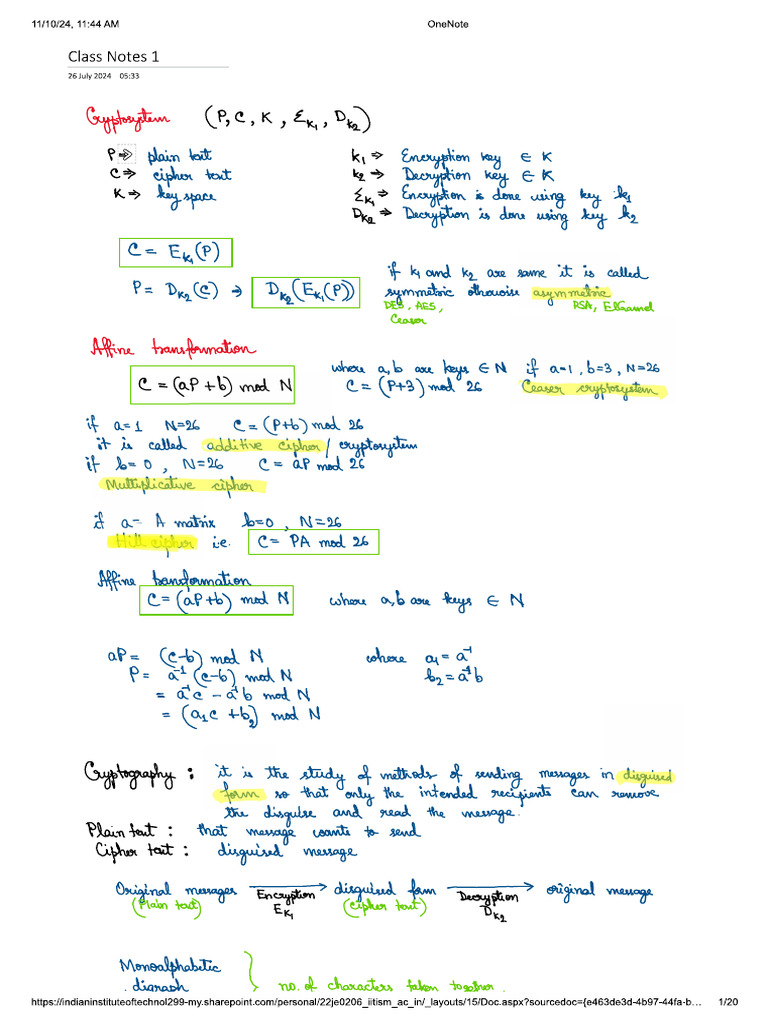 11/10/24, 11:44 AM OneNote
Class Notes 1
26 July 2024 05:33
Cryptosystem (P, C, K, Ɛ_K₁, D_K₂)
P ⇒ plain text
C ⇒ cipher text
K ⇒ key space
k₁ ⇒ Encryption key ∈ K
k₂ ⇒ Decryption key ∈ K
Ɛ_K₁ ⇒ Encryption is done using key k₁
D_K₂ ⇒ Decryption is done using key k₂
C = E_K₁(P)
P = D_K₂(C) → D_K₂(E_K₁(P))
if k₁ and k₂ are same it is called
symmetric otherwise asymmetric
DES, AES, RSA, ElGamal
Ceaser
Affine transformation
C = (aP + b) mod N
where a, b are keys ∈ N if a=1, b=3, N=26
C = (P+3) mod 26 Ceaser cryptosystem
if a=1 N=26 C = (P+b) mod 26
it is called additive cipher / cryptosystem
if b=0, N=26 C = aP mod 26
Multiplicative cipher
if a = A matrix b=0, N=26
Hill cipher i.e. C = PA mod 26
Affine transformation
C = (aP+b) mod N where a, b are keys ∈ N
aP = (c-b) mod N where a₁ = a⁻¹
P = a⁻¹(c-b) mod N b₂ = a⁻¹b
= a⁻¹c - a⁻¹b mod N
= (a₁c + b₂) mod N
Cryptography : it is the study of methods of sending messages in disguised
form so that only the intended recipients can remove
the disguise and read the message.
Plain text : that message wants to send
Cipher text : disguised message
Original messages Encryption E_K₁ disguised form Decryption D_K₂ original message
(Plain text) (cipher text)
Monoalphabetic
digraph no. of characters taken together.
https://indianinstituteoftechnol299-my.sharepoint.com/personal/22je0206_iitism_ac_in/_layouts/15/Doc.aspx?sourcedoc={e463de3d-4b97-44fa-b… 1/20